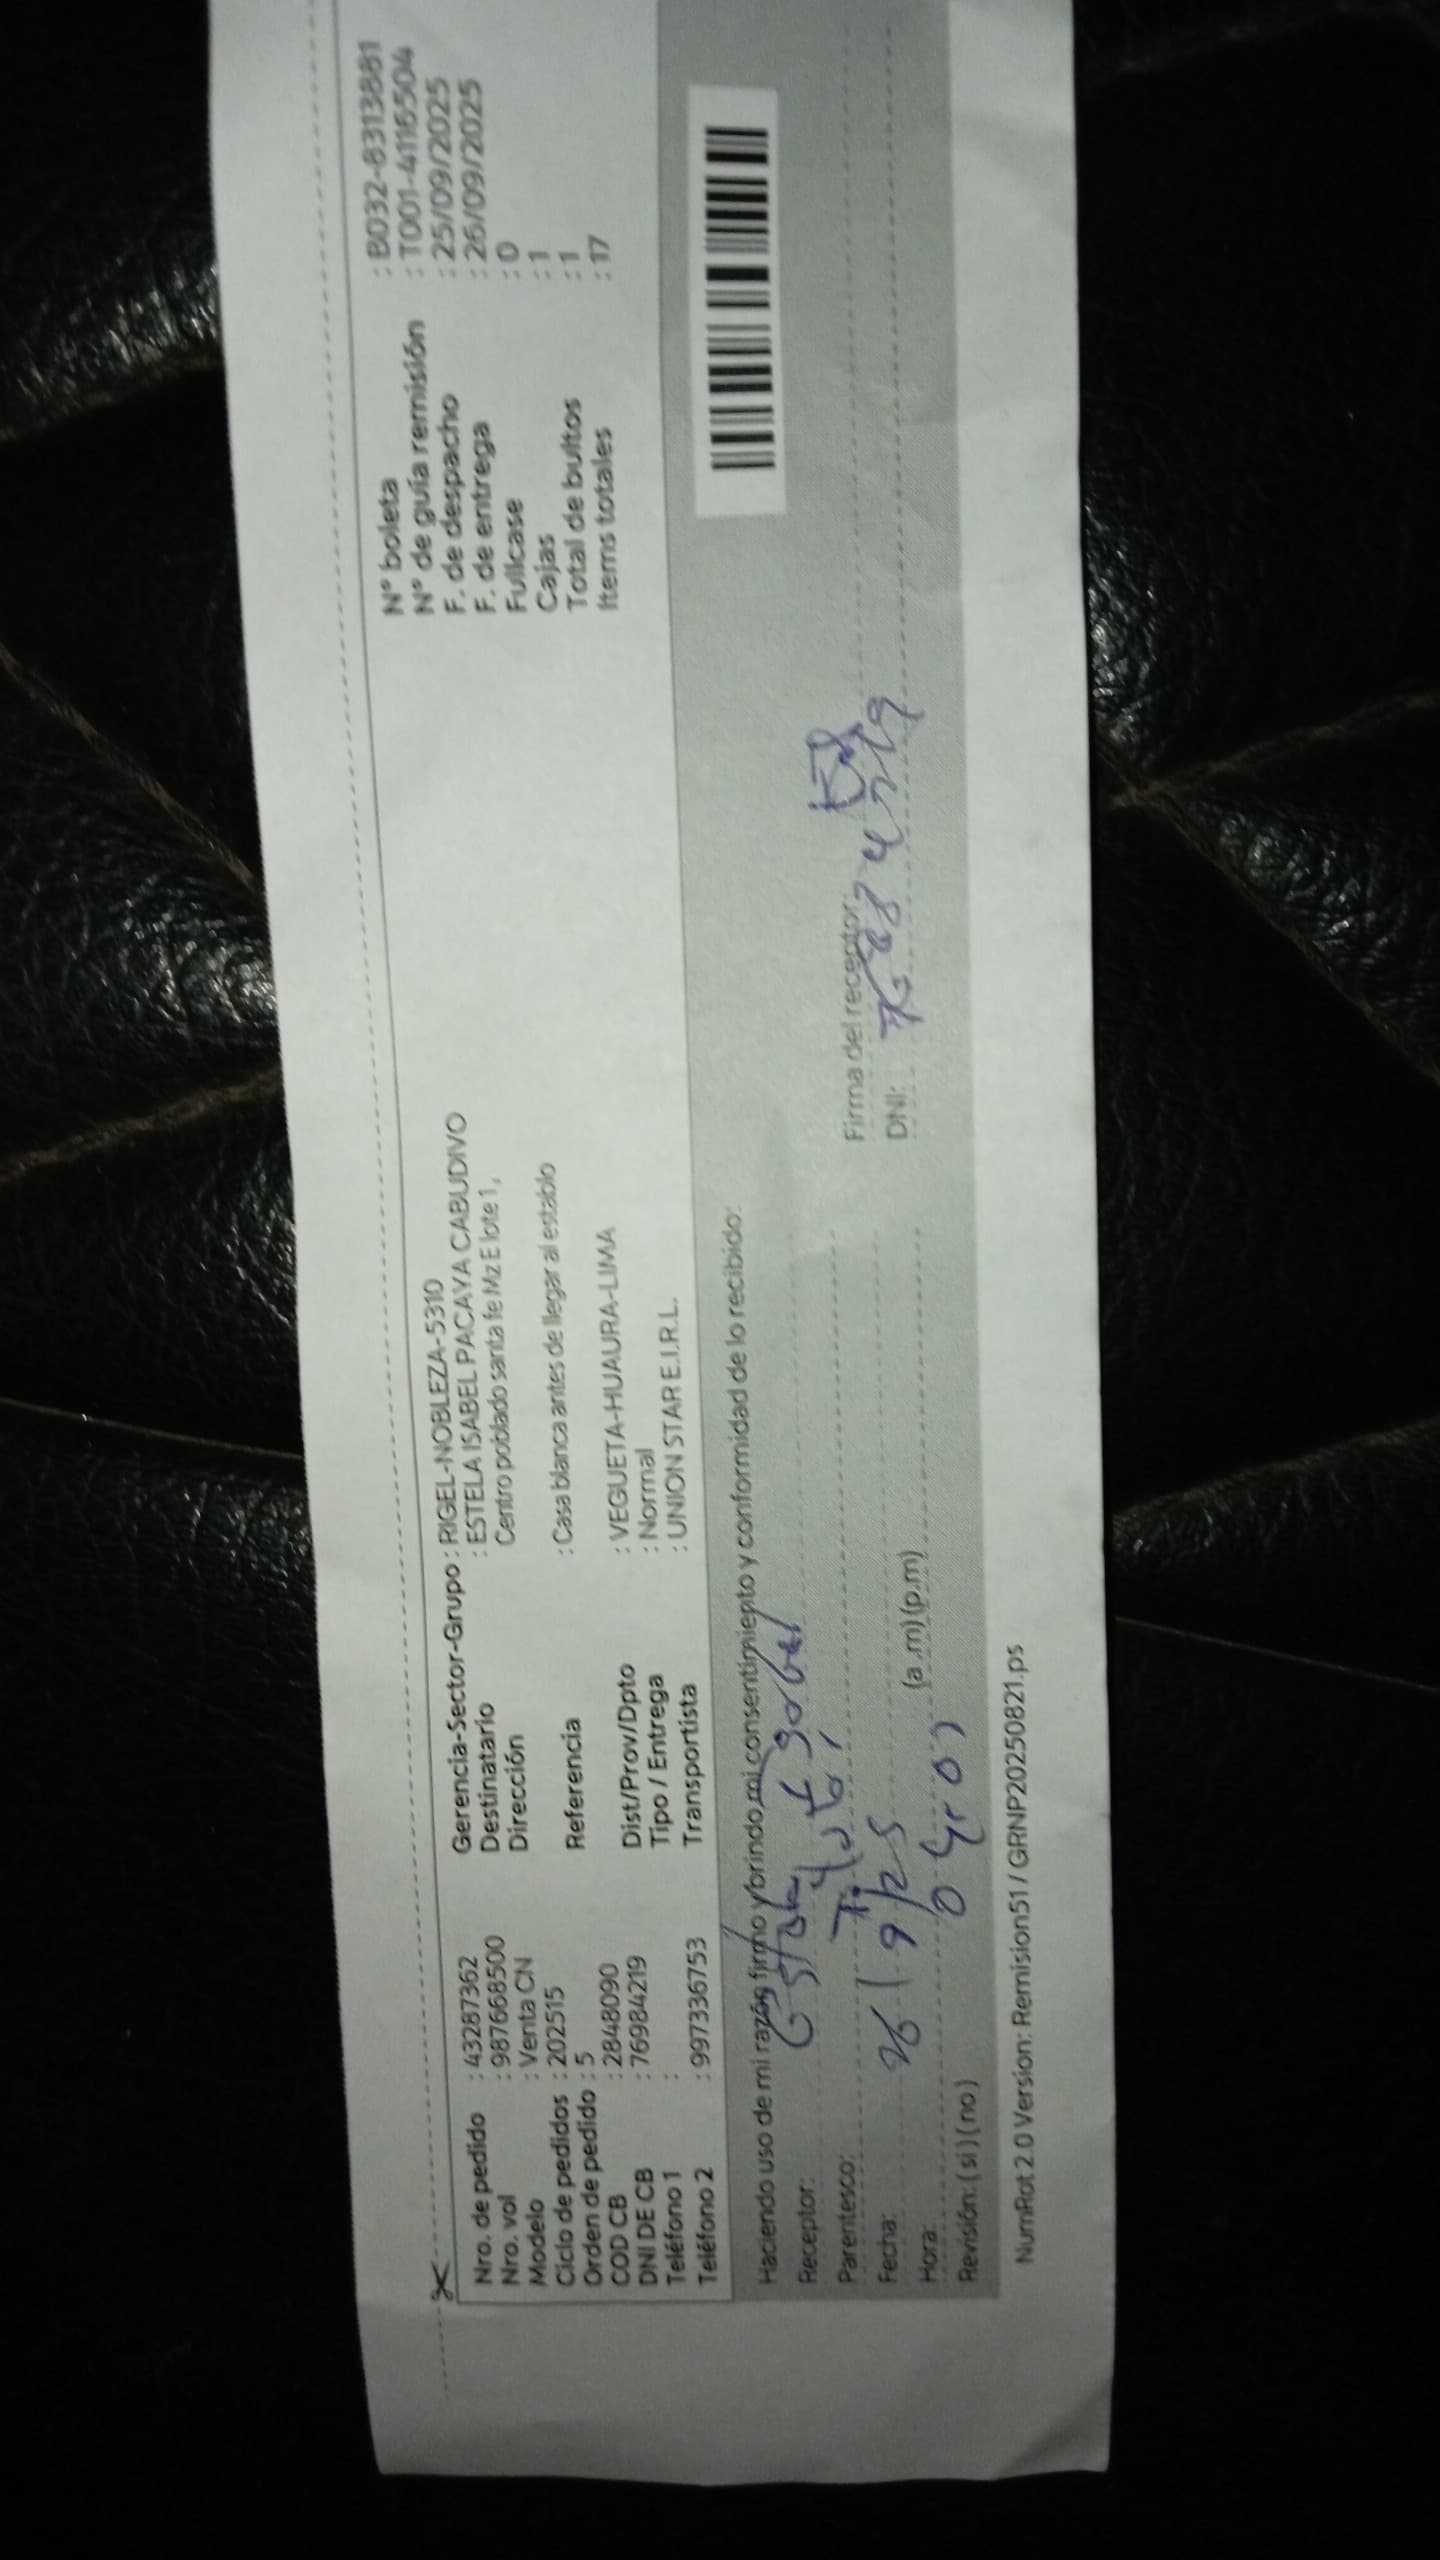 Nro. de pedido : 43287362
Nro. vol : 987668500
Modelo : Venta CN
Ciclo de pedidos : 202515
Orden de pedido : 5
COD CB : 2848090
DNI DE CB : 76984219
Teléfono 1 :
Teléfono 2 : 997336753
Gerencia-Sector-Grupo : RIGEL-NOBLEZA-5310
Destinatario : ESTELA ISABEL PACAYA CABUDIVO
Dirección Centro poblado santa fe Mz E lote 1,
Referencia : Casa blanca antes de llegar al establo
Dist/Prov/Dpto : VEGUETA-HUAURA-LIMA
Tipo / Entrega : Normal
Transportista : UNION STAR E.I.R.L.
N° boleta : B032-83113881
N° de guía remisión : T001-41116504
F. de despacho : 25/09/2025
F. de entrega : 26/09/2025
Fullcase : 0
Cajas : 1
Total de bultos : 1
Items totales : 17
Haciendo uso de mi razón firmo y brindo mi consentimiento y conformidad de lo recibido:
Receptor:
Parentesco:
Fecha: 26/9/25
Hora: (a.m) (p.m)
Revisión: ( si ) ( no )
Firma del receptor:
DNI:
NumRot 2.0 Version: Remision51 / GRNP20250821.ps